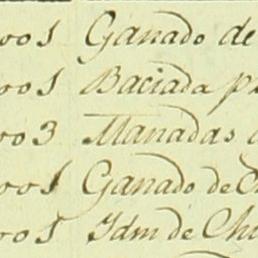 vos 1 Ganado de
vos 1 Baciada p
vo 3 Manadas
vos 1 Ganado de C
vos 1 Idm de Chi